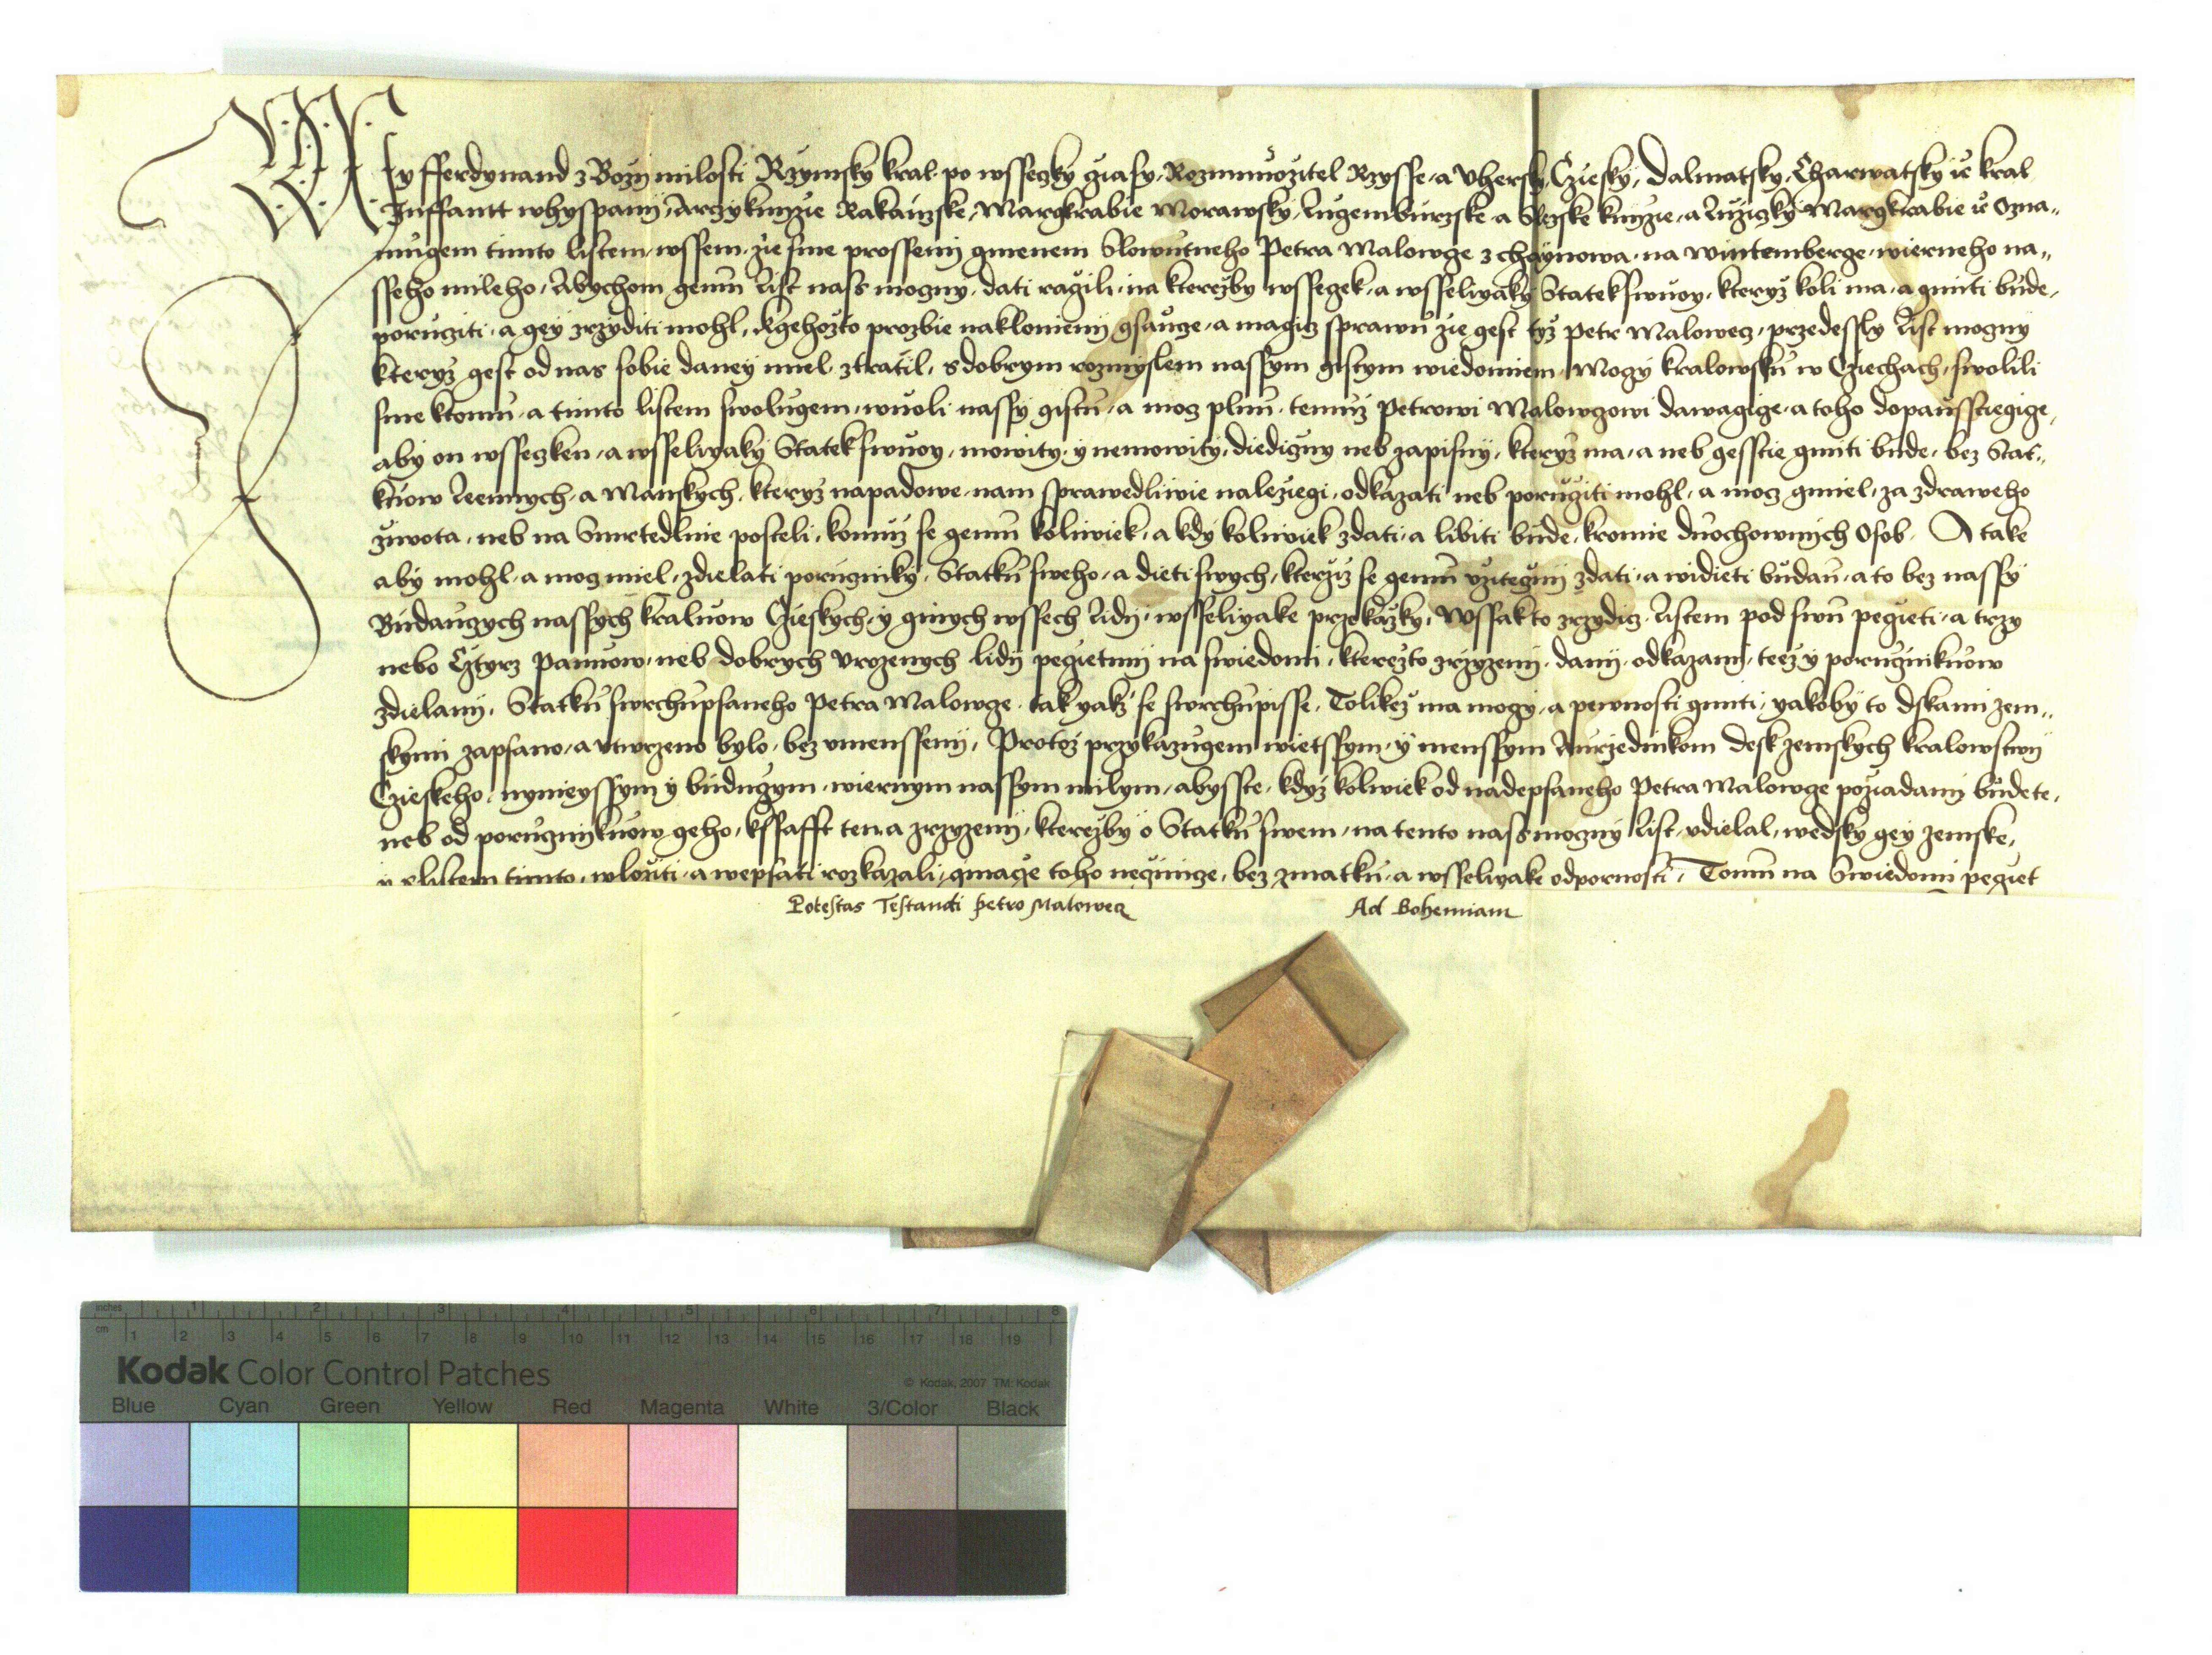 My fferdynand z Bozij milosti Rzymsky kral po wsseczky cziasy, Rozmnuozitel Rzysse, a Vhersky, Cziesky, Dalmatsky, Charwatsky ic kral
Inffantt whyspanij, Arczyknizie Rakauzske, Margkrabie Morawsky, Lucemburzske a Slezske knizie, a Luziczky Margkrabie ic Ozna„
mugem timto listem, wssem, zie sme prosseni gmenem Slowutneho Petra Malowcze z chaynowa, na Wintemberge, wierneho na„
sseho mileho, Abychom gemu List nass moczny, dati raczili, na kterezby wssegek, a wsseliyaky Statek swuoy, kteryz koli ma, a gmiti bude,
porucziti, a gey zrzyditi mohl, K gehozto prozbie naklonieni gsaucze, a magicz sprawu zie gest tyz Petr Malowecz, przedessly List moczny
kteryz gest od nas sobie daney miel ztratil, s dobrym rozmyslem nassym gistym wiedomiem, Moczy kralowsku w Cziechach, swolili
sme ktomu, a timto listem swolugem, wuoli nassy gistu, a mocz plnu, temuz Petrowi Malowczowi dawagicze, a toho dopaussciegicze,
aby on wssecken, a wsseliyaky Statek swuoy, mowity, y nemowity, diediczny neb zapisny, kteryz ma, a neb gesstie gmiti bude, bez Stat„
kuow Leennych, a Manskych, kteryz napadowe, nam sprawedliwie naleziegi, odkazati neb porucziti mohl, a mocz gmiel, za zdraweho
ziwota, neb na Smrtedlnie posteli, komuz se gemu koliwiek, a kdy koliwiek zdati, a libiti bude, kromie duochownich Osob. A take
aby mohl, a mocz miel, zdielati porucziky, Statku sweho, a dieti swych, kterziz se gemu vziteczni zdati, a widieti budau, a to bez nassy
Budauczych nassych kraluow Czieskych, y ginych wssech Lidij, wsseliyake przekazky, Wssak to zrzydicz Listem pod swu peczieti, a trzy
nebo Cztyrz Panuow, neb dobrych Vrozenych lidij pecziettmi na swiedomi, kterezto zrzyzeni, dani, odkazani, teez y porucznikuow
zdielani, Statku swrchupsaneho Petra Malowcze, tak yakz se swrchupisse, Tolikez ma moczy, a pewnosti gmiti, yakoby to dskami zem„
skymi zapsano, a vtwrzeno bylo, bez vmenssenij, Protoz przykazugem wietssym, y menssym Aurzednikom desk zemskych kralowstwij
Czieskeho, nynieyssym y buduczym, wiernym nassym milym, abysste, kdyz koliwiek od nadepsaneho Petra Malowcze poziadani budete,
neb od porucznikuow geho, kssafft ten, a zrzyzeni, kterezby o Statku swem, na tento nass moczny List, vdielal, wedsky gey zemske,
y s listem timto, wloziti, a wepsati rozkazali, ginacze toho neczinicze, bez zmatku, a wsseliyake odpornosti, Tomu na Swiedomi pecziet
Potestas Testandi Petro Malowecz
Ad Bohemiam
inches 1 2 3 4 5 6 7 8
cm 1 2 3 4 5 6 7 8 9 10 11 12 13 14 15 16 17 18 19
Kodak Color Control Patches
© Kodak, 2007 TM: Kodak
Blue Cyan Green Yellow Red Magenta White 3/Color Black